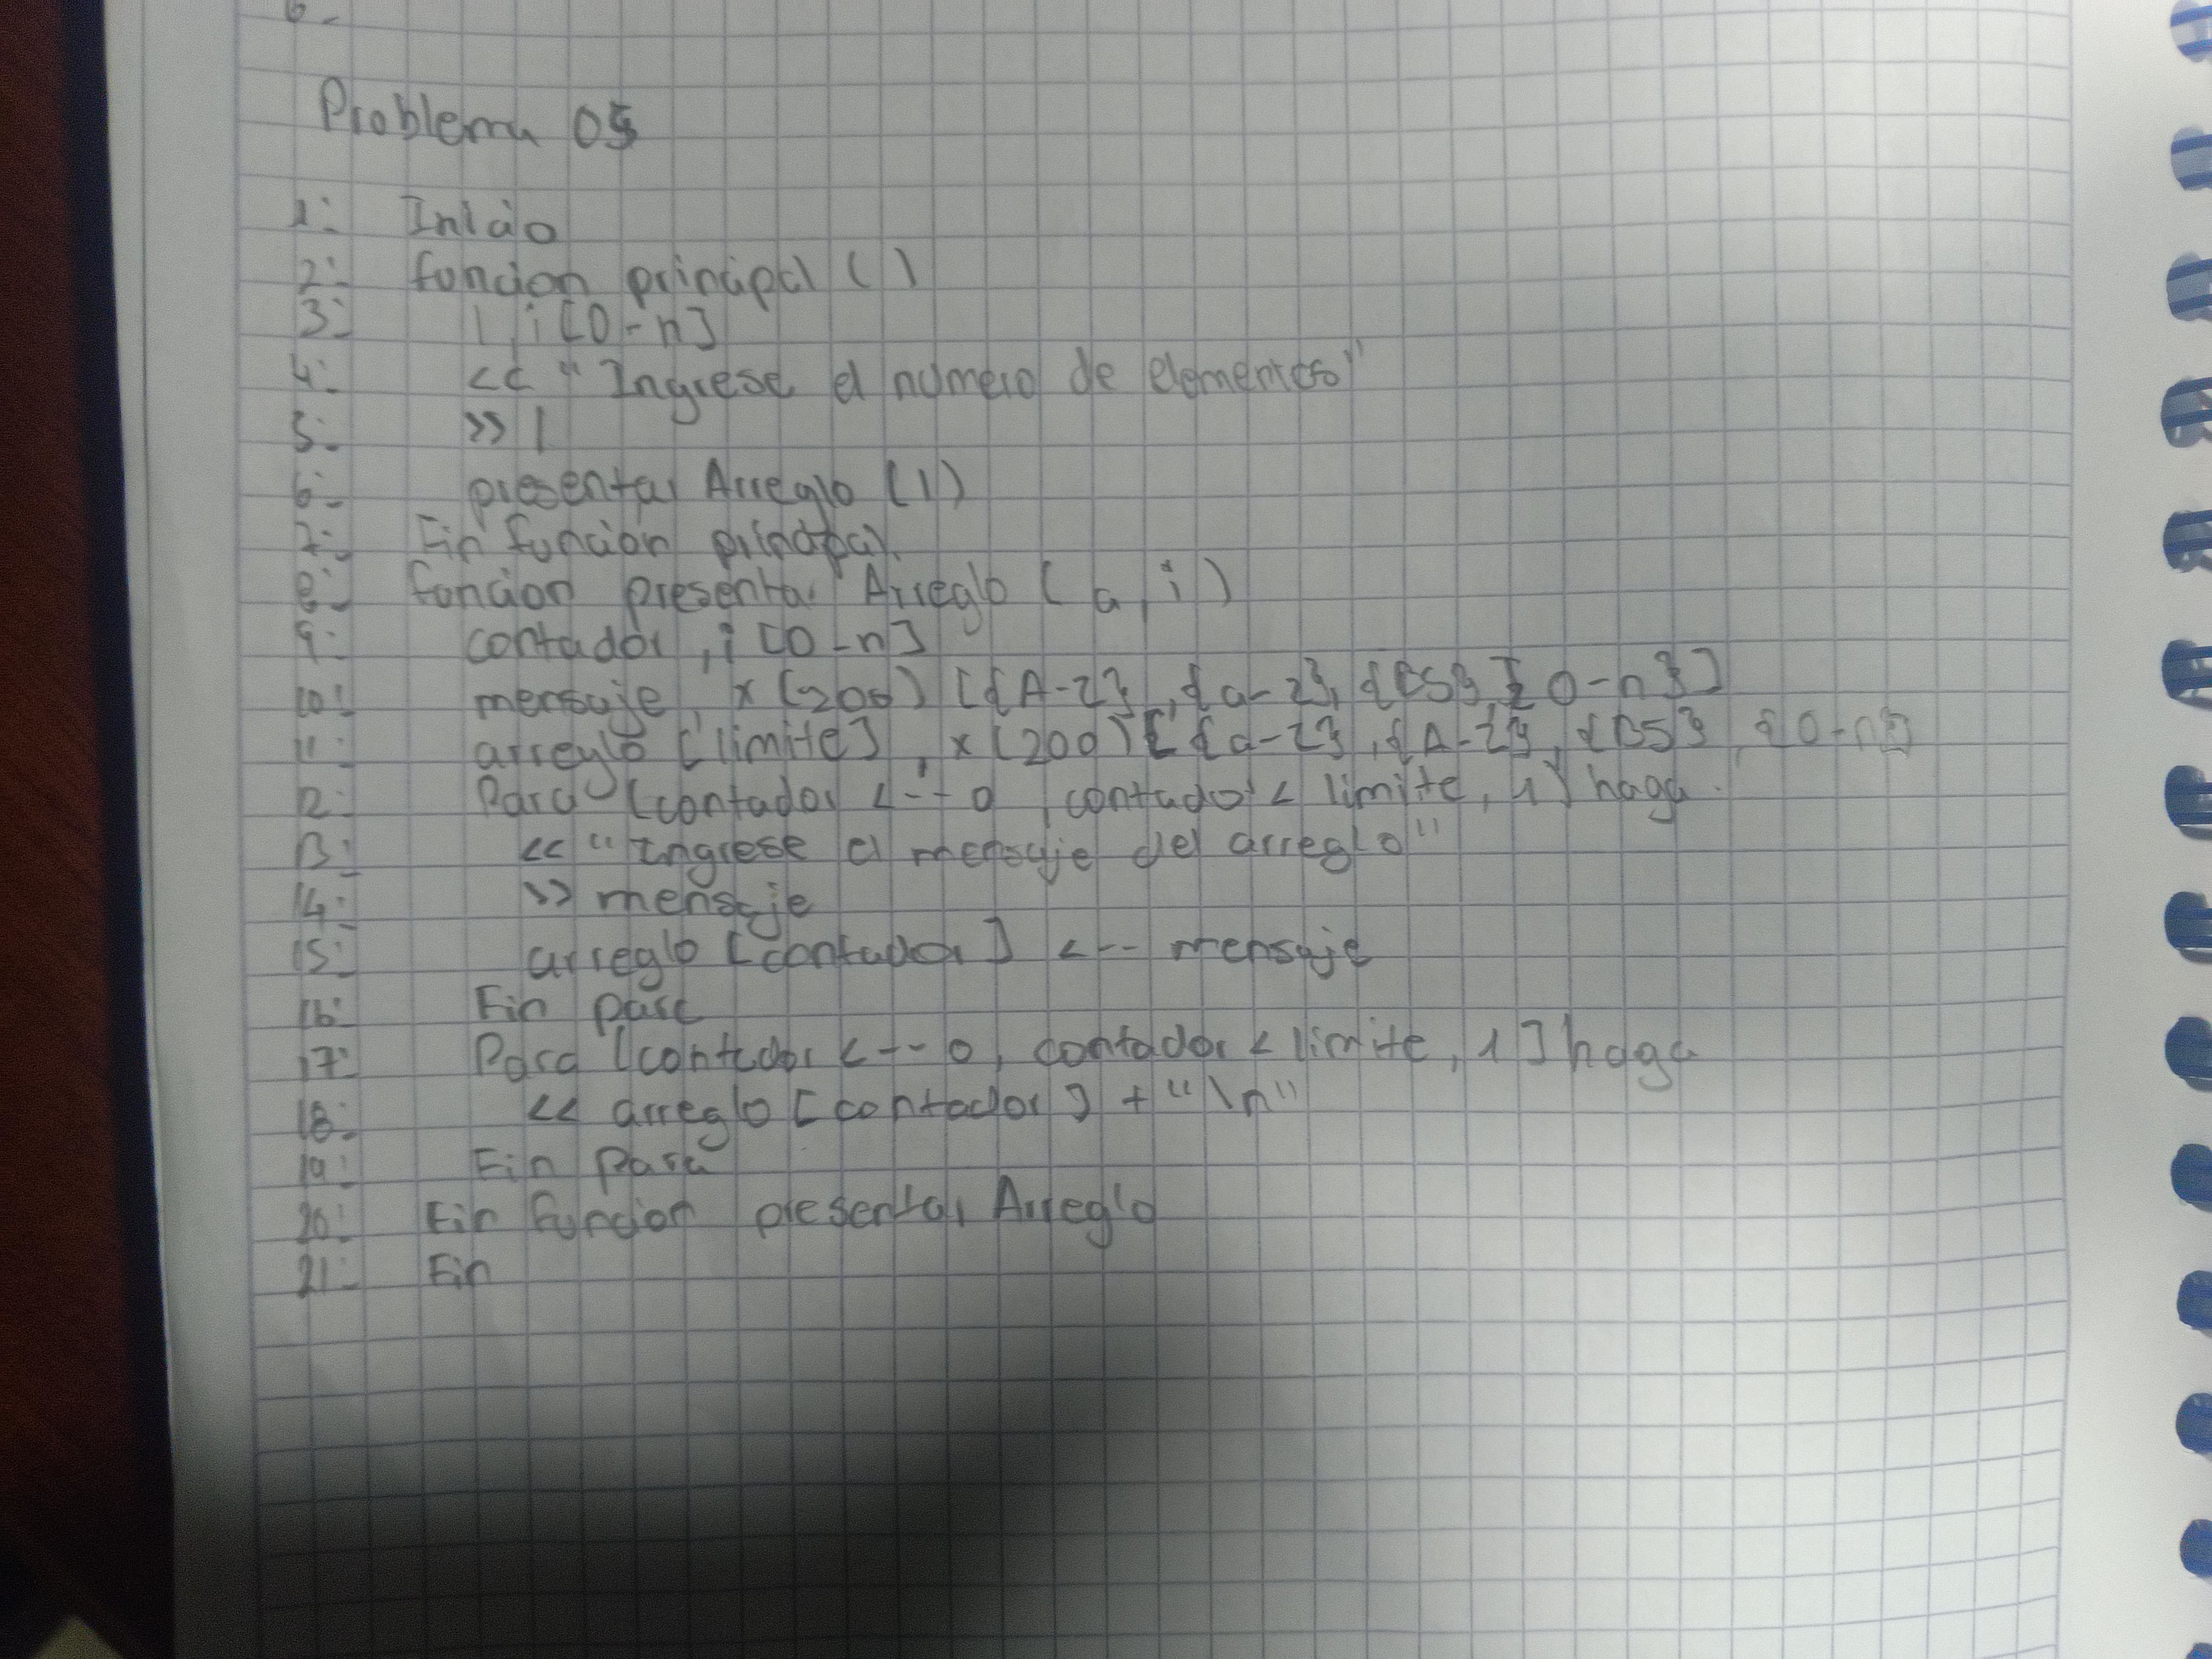 6-
Problema 05
1: Inicio
2: funcion principal ( )
3: l, i [0-n]
4: << "Ingrese el numero de elementos"
5: >> l
6: presentar Arreglo (l)
7: Fin funcion principal
8: funcion presentar Arreglo ( a, i )
9: contador, i [0-n]
10: mensaje, x (200) [{A-Z}, {a-z}, {BS}, {0-n}]
11: arreglo [limite], x (200) [{a-z}, {A-Z}, {BS}, {0-n}]
12: Para [contador <-- 0, contador < limite, 1] haga
13: << "Ingrese el mensaje del arreglo"
14: >> mensaje
15: arreglo [contador] <-- mensaje
16: Fin para
17: Para [contador <-- 0, contador < limite, 1] haga
18: << arreglo [contador] + "\n"
19: Fin para
20: Fin funcion presentar Arreglo
21: Fin